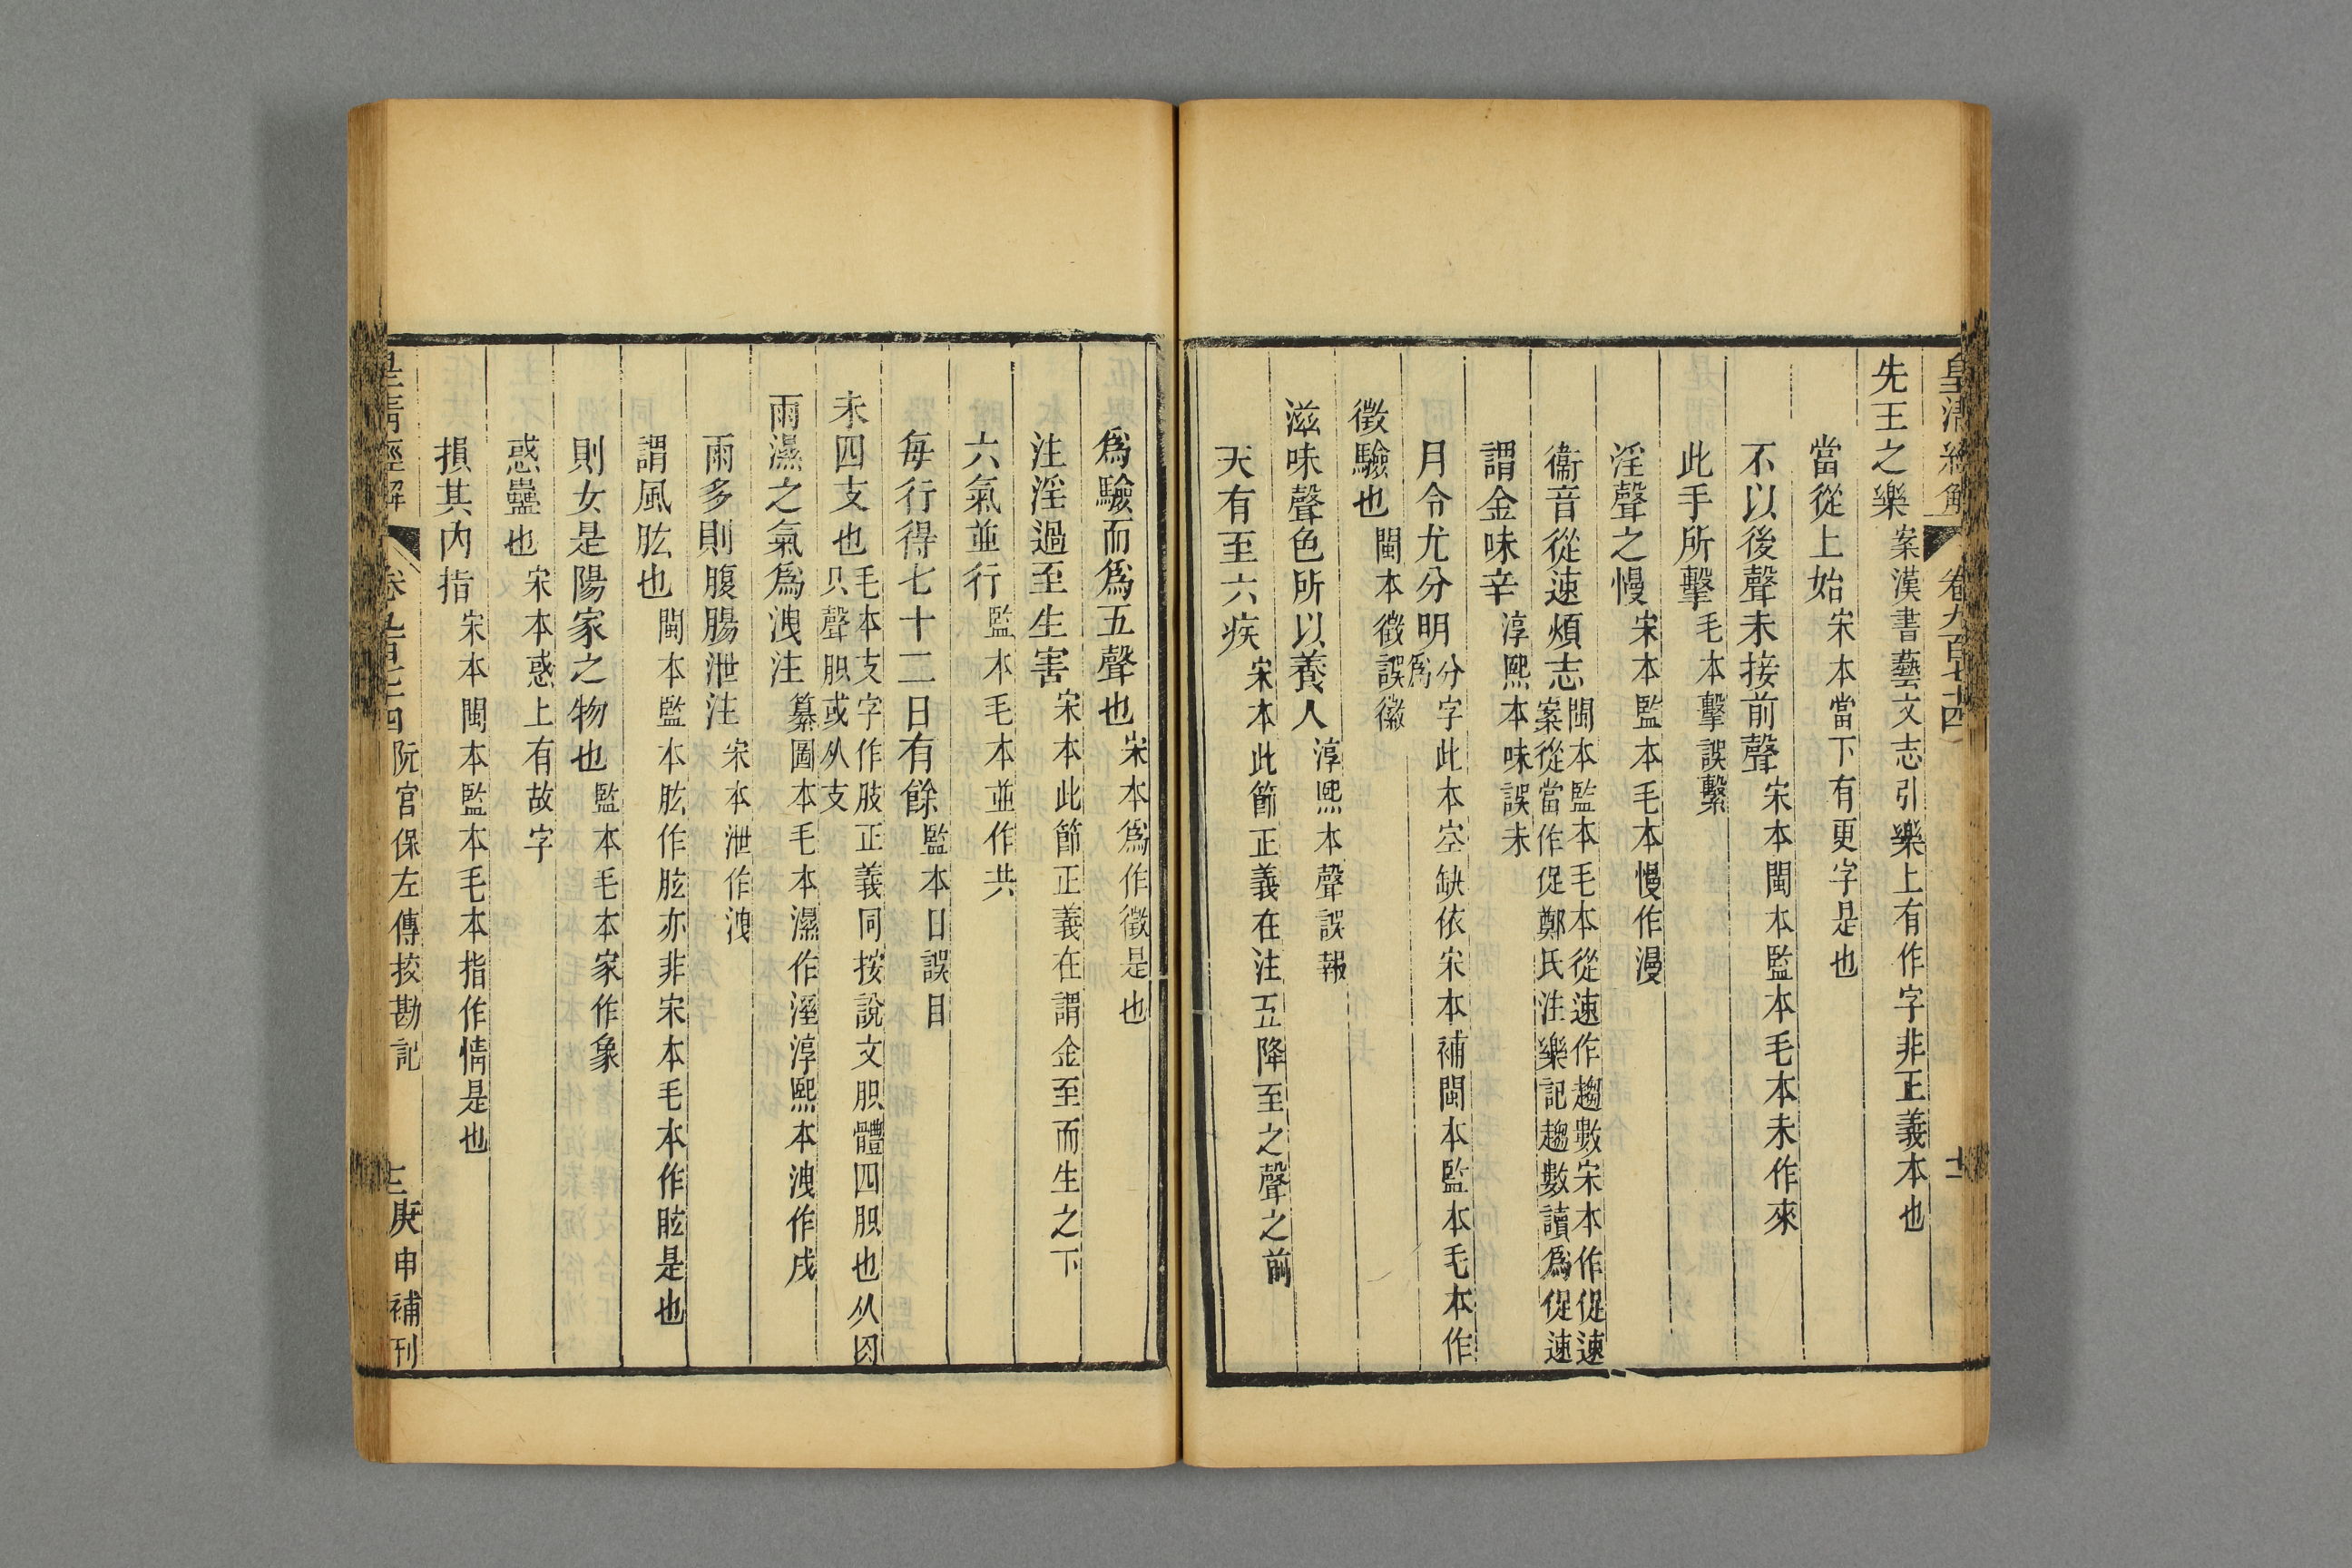 皇清經解 卷九百七十四 十二
先王之樂案漢書藝文志引樂上有作字非正義本也
當從上始宋本當下有更字是也
不以後聲未接前聲宋本閩本監本毛本未作來
此手所擊毛本擊誤繫
淫聲之慢宋本監本毛本慢作漫
衞音從速煩志閩本監本毛本從速作趨數宋本作促速案從當作促鄭氏注樂記趨數讀爲促速
謂金味辛淳熙本味誤未
月令尤分明分字此本空缺依宋本補閩本監本毛本作爲
徵驗也閩本徵誤徽
滋味聲色所以養人淳熙本聲誤報
天有至六疾宋本此節正義在注五降至之聲之前
爲驗而爲五聲也宋本爲作徵是也
注淫過至生害宋本此節正義在謂金至而生之下
六氣並行監本毛本並作共
每行得七十二日有餘監本日誤目
未四支也毛本支字作肢正義同按說文胑體四胑也从肉只聲胑或从支
雨濕之氣爲洩注纂圖本毛本濕作溼淳熙本洩作戌
雨多則腹腸泄注宋本泄作洩
謂風眩也閩本監本眩作胘亦非宋本毛本作眩是也
則女是陽家之物也監本毛本家作象
惑蠱也宋本惑上有故字
損其內指宋本閩本監本毛本指作情是也
皇清經解 卷九百七十四 阮宮保左傳挍勘記 庚申補刊